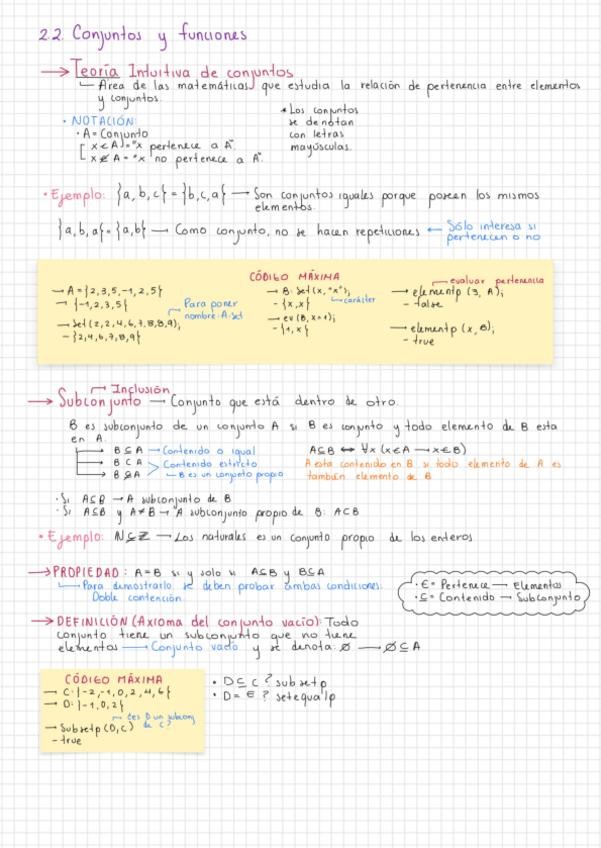 2.2. Conjuntos y funciones
→ Teoría Intuitiva de conjuntos
Área de las matemáticas que estudia la relación de pertenencia entre elementos
y conjuntos.
• NOTACIÓN:
• A = Conjunto
x ∈ A = "x pertenece a A".
x ∉ A = "x no pertenece a A".
* Los conjuntos
se denotan
con letras
mayúsculas.
• Ejemplo: {a, b, c} = {b, c, a} → Son conjuntos iguales porque poseen los mismos
elementos.
{a, b, a} = {a, b} → Como conjunto, no se hacen repeticiones ← Sólo interesa si
pertenecen o no
CÓDIGO MÁXIMA
→ A = {2, 3, 5, -1, 2, 5}
- {-1, 2, 3, 5}
→ set(2, 2, 4, 6, 7, 8, 8, 9);
- {2, 4, 6, 7, 8, 9}
Para poner
nombre: A: set
→ B: set(x, "x");
- {x, x}
carácter
→ ev(B, x=1);
- {1, x}
evaluar pertenencia
→ elementp (3, A);
- false
→ elementp (x, B);
- true
Inclusión
→ Subconjunto → Conjunto que está dentro de otro.
B es subconjunto de un conjunto A si B es conjunto y todo elemento de B esta
en A.
B ⊆ A → Contenido o igual
B ⊂ A > Contenido estricto
B ⊊ A B es un conjunto propio
A ⊆ B ↔ ∀x (x ∈ A → x ∈ B)
A esta contenido en B si todo elemento de A es
también elemento de B
• Si A ⊆ B → A subconjunto de B
• Si A ⊆ B y A ≠ B → A subconjunto propio de B: A ⊂ B
• Ejemplo: N ⊊ Z → Los naturales es un conjunto propio de los enteros
→ PROPIEDAD: A = B si y solo si A ⊆ B y B ⊆ A
Para demostrarlo se deben probar ambas condiciones.
Doble contención.
• ∈ = Pertenece → Elementos
• ⊆ = Contenido → Subconjunto
→ DEFINICIÓN (Axioma del conjunto vacío): Todo
conjunto tiene un subconjunto que no tiene
elementos → Conjunto vacío y se denota: ∅ → ∅ ⊆ A
CÓDIGO MÁXIMA
→ C: {-2, -1, 0, 2, 4, 6}
→ D: {-1, 0, 2}
¿es D un subconj
de C?
→ Subsetp (D, C)
- true
• D ⊆ C ? subsetp
• D = E ? setequalp